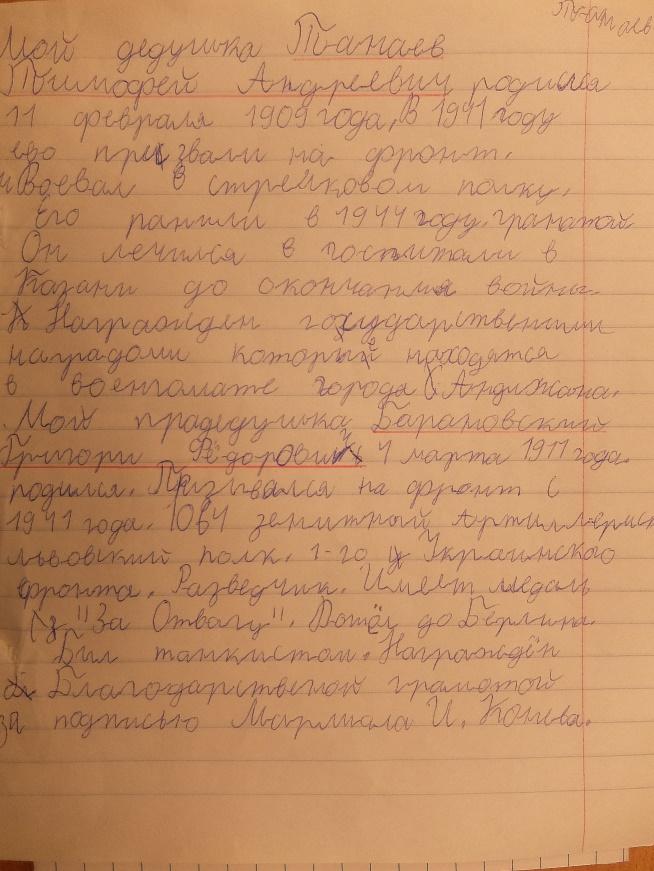 Танаев
Мой дедушка Танаев
Тимофей Андреевич родился
11 февраля 1909 года, В 1941 году
его призвали на фронт.
и Воевал в стрелковом полку.
Его ранили в 1944 году. гранатой
Он лечился в госпитали в
Казани до окончания войны.
Награжден государственими
наградами которые находятся
в военгомате города Андижана.
Мой прадедушка Барановский
Григори Фёдорович 4 марта 1911 года.
родился. Призывался на фронт с
1941 года. 1064 зенитный Артиллерийск
львовский полк. 1-го Украинского
фронта. Разведчик. Имеет медаль
"За Отвагу". Дошёл до Берлина.
Был танкистом. Награждён
Благодарственой грамотой
за подписью Маршала И. Конева.